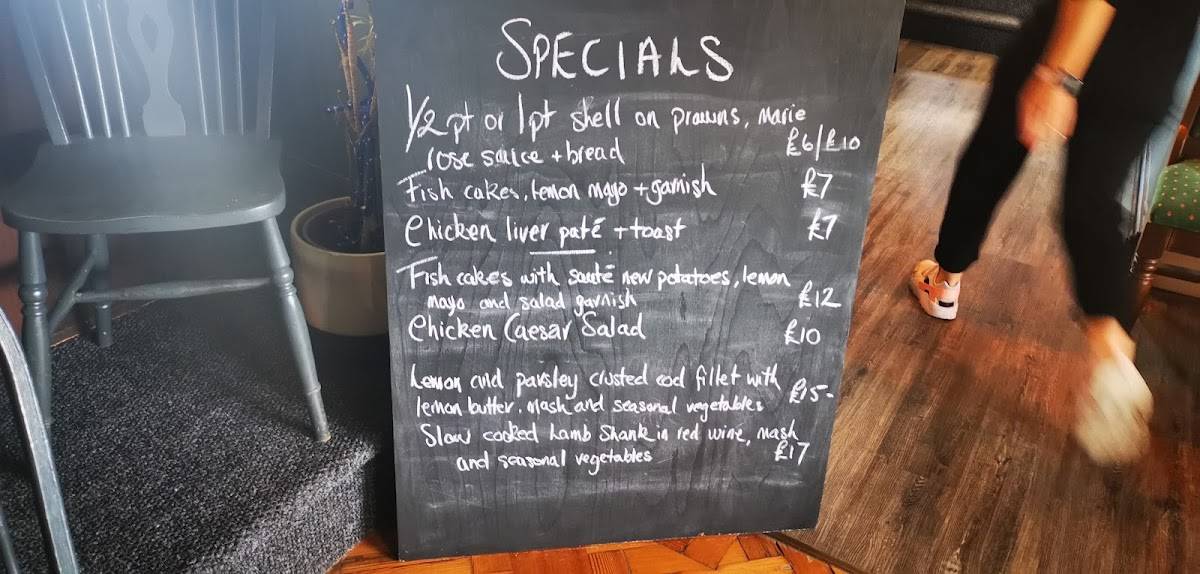 SPECIALS
1/2 pt or 1pt shell on prawns, Marie
rose sauce + bread £6/£10
Fish cakes, lemon mayo + garnish £7
Chicken liver paté + toast £7
Fish cakes with sauté new potatoes, lemon
mayo and salad garnish £12
Chicken Caesar Salad £10
Lemon and parsley crusted cod fillet with
lemon butter, mash and seasonal vegetables £15-
Slow cooked Lamb Shank in red wine, mash
and seasonal vegetables £17